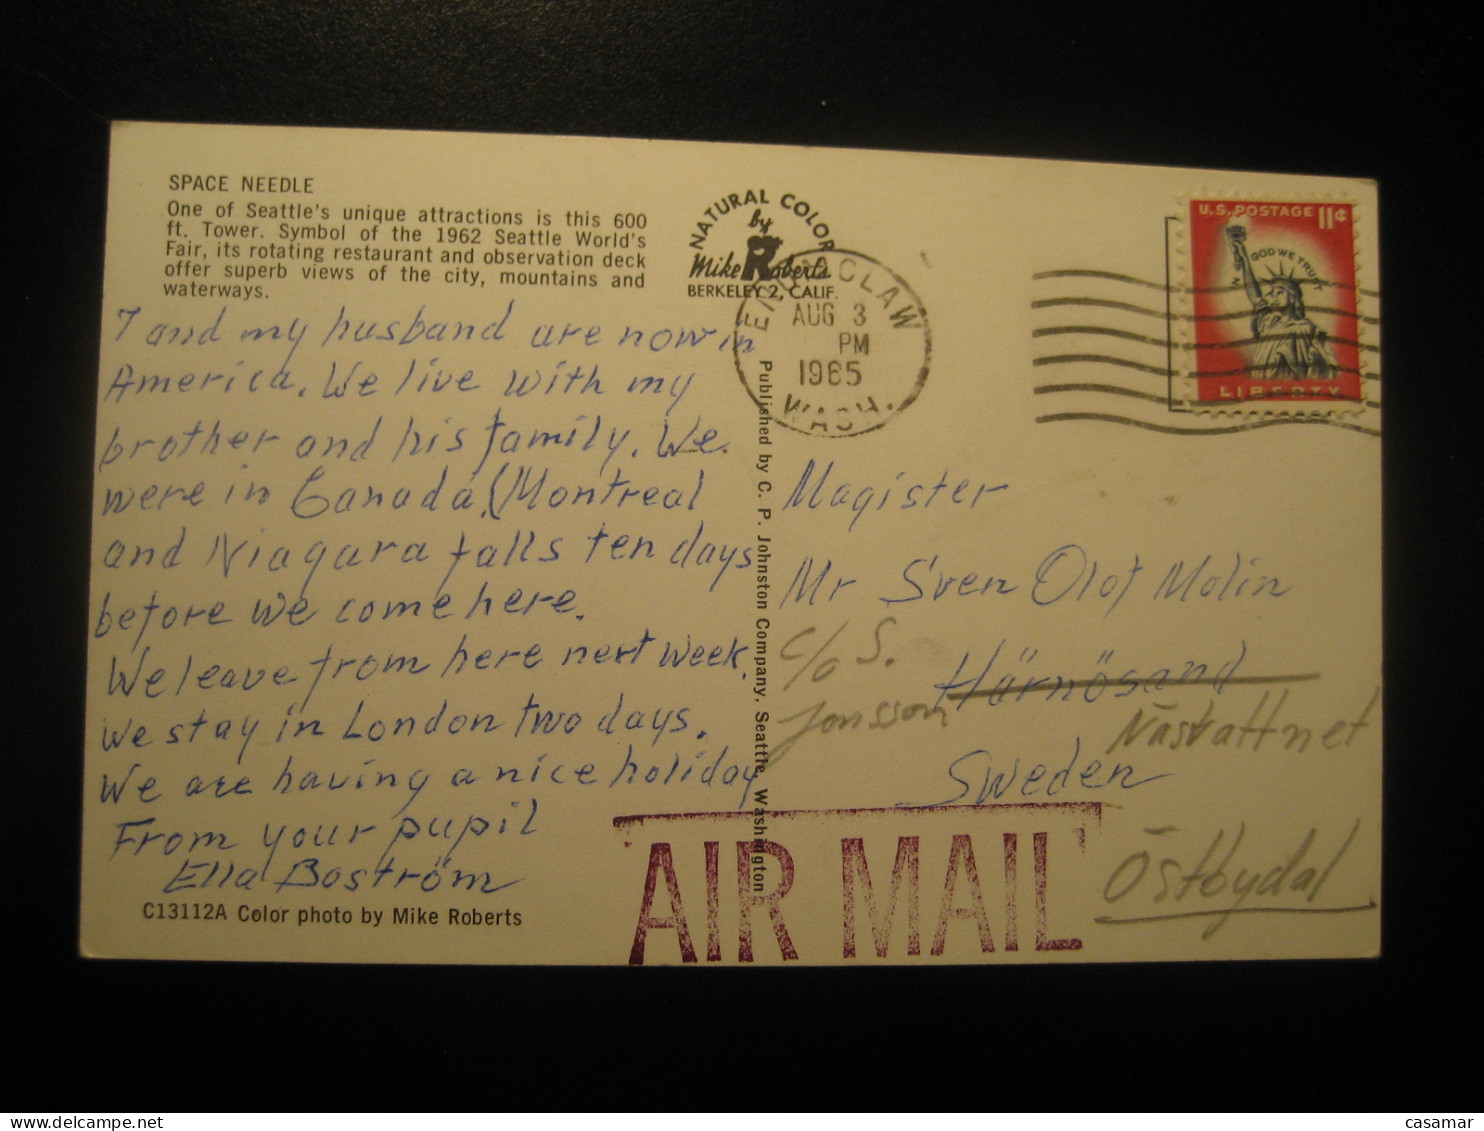 SPACE NEEDLE
One of Seattle's unique attractions is this 600
ft. Tower. Symbol of the 1962 Seattle World's
Fair, its rotating restaurant and observation deck
offer superb views of the city, mountains and
waterways.
I and my husband are now in
America. We live with my
brother and his family. We
were in Canada, (Montreal
and Niagara falls ten days
before we come here.
We leave from here next week.
We stay in London two days.
We are having a nice holiday
From your pupil
Ella Boström
C13112A Color photo by Mike Roberts
NATURAL COLOR
by
Mike Roberts
BERKELEY 2, CALIF.
ENUMCLAW
AUG 3
PM
1965
WASH.
Published by C. P. Johnston Company, Seattle, Washington
U.S. POSTAGE 11¢
IN GOD WE TRUST
LIBERTY
Magister
Mr Sven Olof Molin
c/o S.
Jonsson
Härnösand
Näskattnet
Sweden
Östbydal
AIR MAIL
casamar